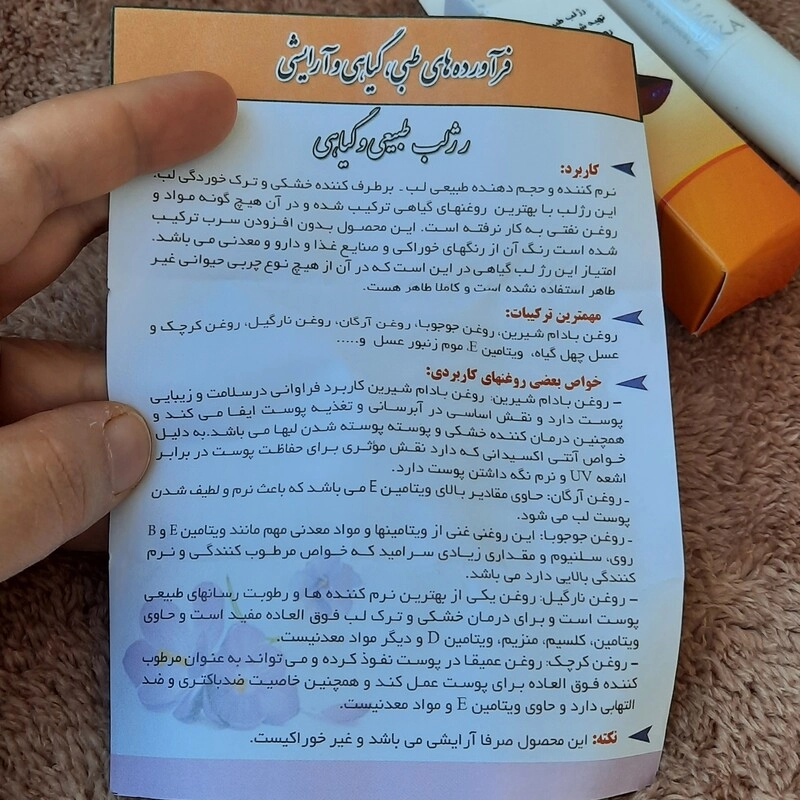 فرآورده‌های طبی، گیاهی و آرایشی
رژلب طبیعی و گیاهی
کاربرد:
نرم کننده و حجم دهنده طبیعی لب - برطرف کننده خشکی و ترک خوردگی لب.
این رژلب با بهترین روغنهای گیاهی ترکیب شده و در آن هیچ گونه مواد و
روغن نفتی به کار نرفته است. این محصول بدون افزودن سرب ترکیب
شده است رنگ آن از رنگهای خوراکی و صنایع غذا و دارو و معدنی می باشد.
امتیاز این رژ لب گیاهی در این است که در آن از هیچ نوع چربی حیوانی غیر
طاهر استفاده نشده است و کاملا طاهر هست.
مهمترین ترکیبات:
روغن بادام شیرین، روغن جوجوبا، روغن آرگان، روغن نارگیل، روغن کرچک و
عسل چهل گیاه، ویتامین E، موم زنبور عسل و.....
خواص بعضی روغنهای کاربردی:
– روغن بادام شیرین: روغن بادام شیرین کاربرد فراوانی درسلامت و زیبایی
پوست دارد و نقش اساسی در آبرسانی و تغذیه پوست ایفا می کند و
همچنین درمان کننده خشکی و پوسته پوسته شدن لبها می باشد.به دلیل
خواص آنتی اکسیدانی که دارد نقش مؤثری برای حفاظت پوست در برابر
اشعه UV و نرم نگه داشتن پوست دارد.
- روغن آرگان: حاوی مقادیر بالای ویتامین E می باشد که باعث نرم و لطیف شدن
پوست لب می شود.
- روغن جوجوبا: این روغنی غنی از ویتامینها و مواد معدنی مهم مانند ویتامین E و B
روی، سلنیوم و مقداری زیادی سرامید که خواص مرطوب کنندگی و نرم
کنندگی بالایی دارد می باشد.
– روغن نارگیل: روغن یکی از بهترین نرم کننده ها و رطوبت رسانهای طبیعی
پوست است و برای درمان خشکی و ترک لب فوق العاده مفید است و حاوی
ویتامین، کلسیم، منزیم، ویتامین D و دیگر مواد معدنیست.
– روغن کرچک: روغن عمیقا در پوست نفوذ کرده و می تواند به عنوان مرطوب
کننده فوق العاده برای پوست عمل کند و همچنین خاصیت ضدباکتری و ضد
التهابی دارد و حاوی ویتامین E و مواد معدنیست.
نکته: این محصول صرفا آرایشی می باشد و غیر خوراکیست.